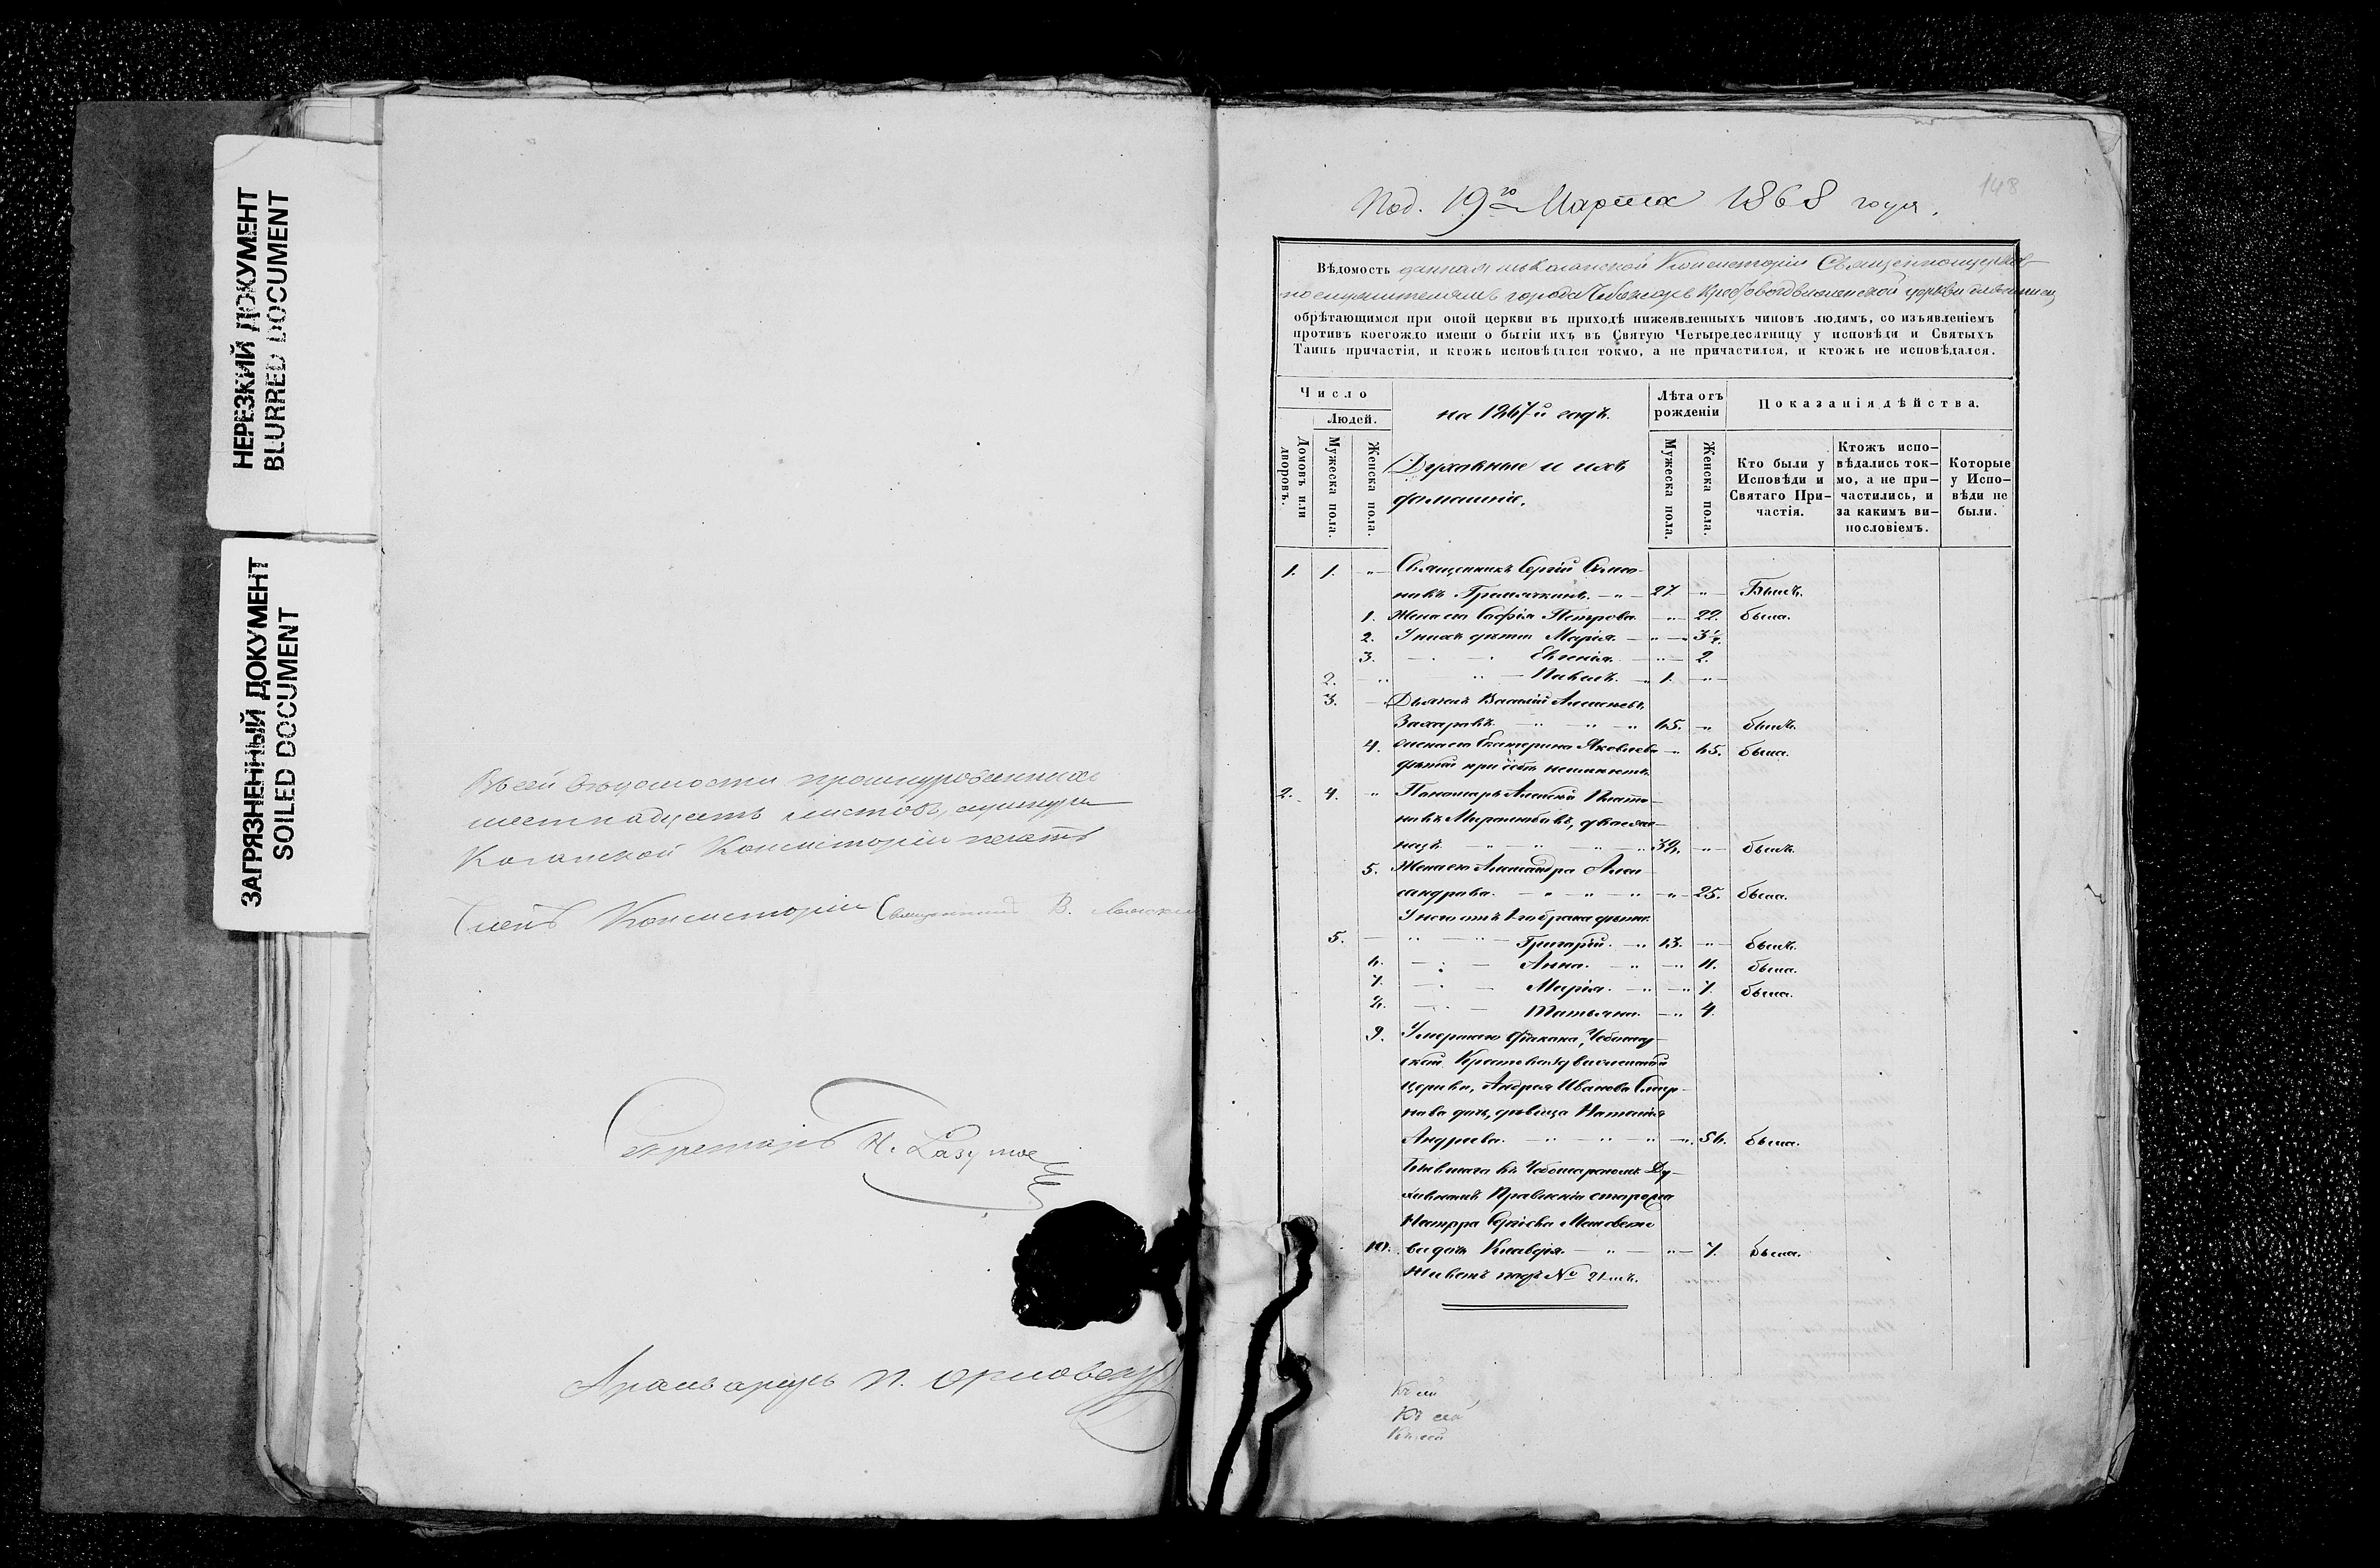 НЕРЕЗКИЙ ДОКУМЕНТ
BLURRED DOCUMENT
ЗАГРЯЗНЕННЫЙ ДОКУМЕНТ
SOILED DOCUMENT
Въ сей вѣдомости прошнурованныхъ
шестнадцать листовъ, скрѣплена
Казанской Консисторіи печать
Членъ Консисторіи Священникъ В.
Секретарь Н. Разумов
Архиваріусъ П. Орловъ
148
Под. 19го Марта 1868 года.
Вѣдомость данная изъ Казанской Консисторіи Священноцерков-
нослужителямъ города Чебоксаръ Крестовоздвиженской церкви для записи
обрѣтающимся при оной церкви въ приходѣ нижеявленныхъ чиновъ людямъ, со изъявленіемъ
противъ коегождо имени о бытіи ихъ въ Святую Четыредесятницу у исповѣди и Святыхъ
Таинъ причастія, и ктожъ исповѣдался токмо, а не причастился, и ктожъ не исповѣдался.
Число
Людей.
Домовъ или дворовъ.
Мужеска пола.
Женска пола.
на 1867й годъ.
Духовные и ихъ
домашніе.
Лѣта отъ рожденіи
Мужеска пола.
Женска пола.
Показанія дѣйства.
Кто были у Исповѣди и Святаго При-частія.
Ктожъ испо-вѣдались ток-мо, а не при-частились, и за какимъ ви-нословіемъ.
Которые у Испо-вѣди не были.
1. 1. „ Священникъ Сергій Симео-
новъ Громячкинъ. „ 27 „ Былъ.
1. Жена его Софія Петрова. „ 22. была.
2. У нихъ дѣти Марія. „ 3½
3. Евгенія. „ 2.
2. „ Павелъ. „ 1. „
3. Дьячекъ Василій Алексѣевъ
Захаровъ. „ 65. „ былъ.
4. жена его Екатерина Яковлева „ 65. была.
дѣтей при себѣ неимѣютъ.
2. 4. „ Пономарь Алексѣй Плато-
новъ Миролюбовъ, двоеже-
нецъ. „ 38. „ былъ.
5. Жена его Александра Алек-
сандрова. „ 25. была.
У него отъ 1го брака дѣти:
5. Григорій. „ 13. „ былъ.
6. Анна. „ 11. была.
7. Марія. „ 7. была.
8. Татьяна. „ 4.
9. Умершаго діакона, Чебоксар-
ской Крестовоздвиженской
церкви, Андрея Иванова Смир-
нова дочь, дѣвица Наталія
Андреева. „ 56. была.
Бывшаго въ Чебоксарскомъ Ду-
ховномъ Правленіи сторожа
Петра Сергѣева
10. ва дочь Клавдія. „ 7. была.
Живетъ подъ № 21мъ.
Къ сей
Къ сей
Къ сей